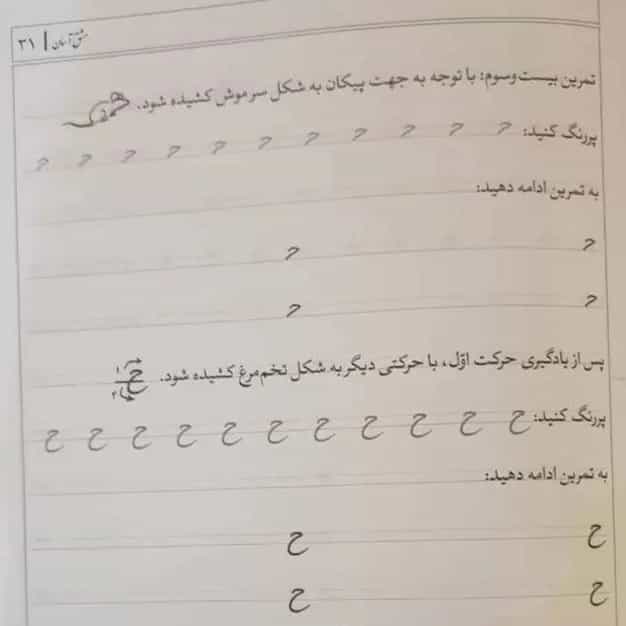 مشق آسان | ۳۱
تمرین بیست‌وسوم: با توجه به جهت پیکان به شکل سر موش کشیده شود.
پررنگ کنید: ﺣ ﺣ ﺣ ﺣ ﺣ ﺣ ﺣ ﺣ ﺣ ﺣ ﺣ
به تمرین ادامه دهید:
ﺣ ﺣ
ﺣ ﺣ
پس از یادگیری حرکت اوّل، با حرکتی دیگر به شکل تخم‌مرغ کشیده شود. ح ۱ ۲
پررنگ کنید: ح ح ح ح ح ح ح ح ح ح ح
به تمرین ادامه دهید:
ح ح
ح ح